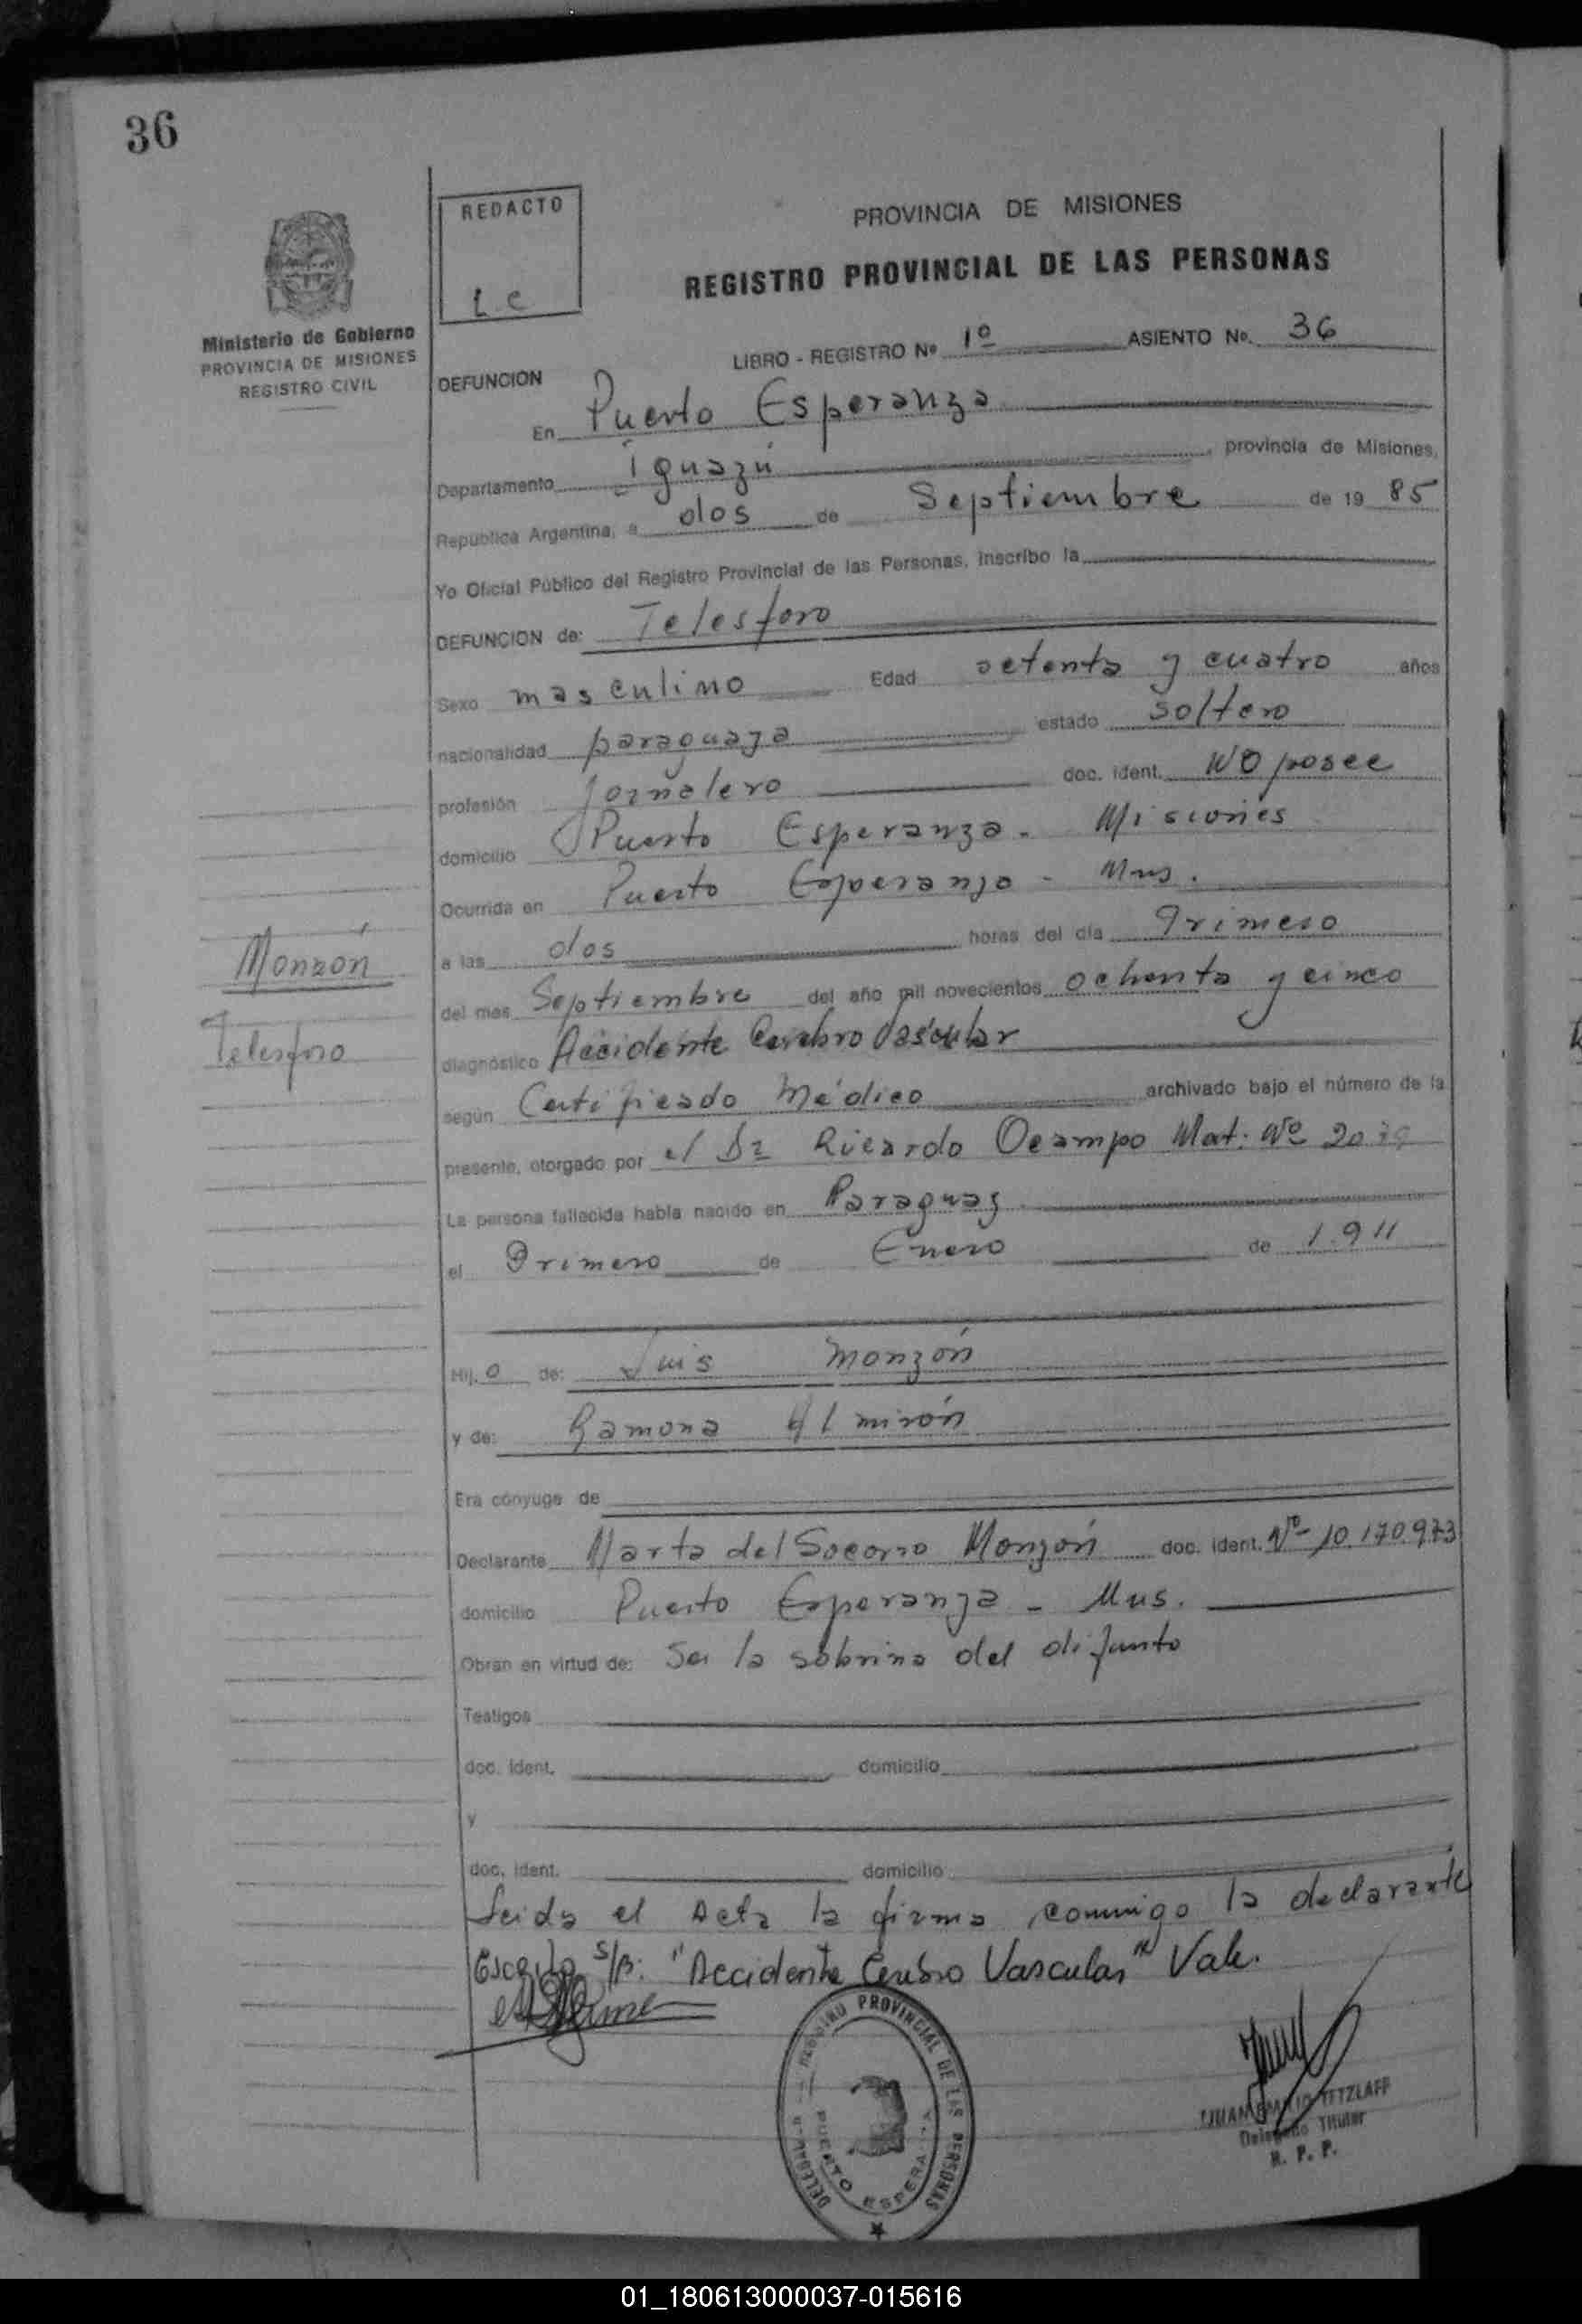 36
REDACTO
L.C
Ministerio de Gobierno
PROVINCIA DE MISIONES
REGISTRO CIVIL
PROVINCIA DE MISIONES
REGISTRO PROVINCIAL DE LAS PERSONAS
LIBRO - REGISTRO Nº 1º ASIENTO Nº. 36
DEFUNCION
En Puerto Esperanza
Departamento Iguazú, provincia de Misiones,
República Argentina, a dos de Septiembre de 19 85
Yo Oficial Público del Registro Provincial de las Personas, inscribo la
DEFUNCION de: Telesforo
Sexo masculino Edad setenta y cuatro años
nacionalidad paraguaya estado soltero
profesión Jornalero doc. ident. NO posee
domicilio Puerto Esperanza - Misiones
Ocurrida en Puerto Esperanza - Mns.
a las dos horas del día Primero
del mes Septiembre del año mil novecientos ochenta y cinco
diagnóstico Accidente Cerebro Vascular
según Certificado Médico archivado bajo el número de la
presente, otorgado por el Dr Ricardo Ocampo Mat: Nº
La persona fallecida había nacido en Paraguay
el Primero de Enero de 1.911
Hij o de: Luis Monzón
y de: Ramona Almirón
Era cónyuge de
Declarante Marta del Socorro Monzón doc. ident. Nº 10.170.973
domicilio Puerto Esperanza - Mns.
Obran en virtud de: Ser la sobrina del difunto
Testigos
doc. ident. domicilio
y
doc. ident. domicilio
Leida el Acta la firma conmigo la declarante
Escrito s/R: "Accidente Cerebro Vascular" Vale.
Monzón
Telesforo
REGISTRO PROVINCIAL DE LAS PERSONAS
DELEGACION
PUERTO ESPERANZA
JUAN EMILIO TETZLAFF
Delegado Titular
R. P. P.
01_180613000037-015616